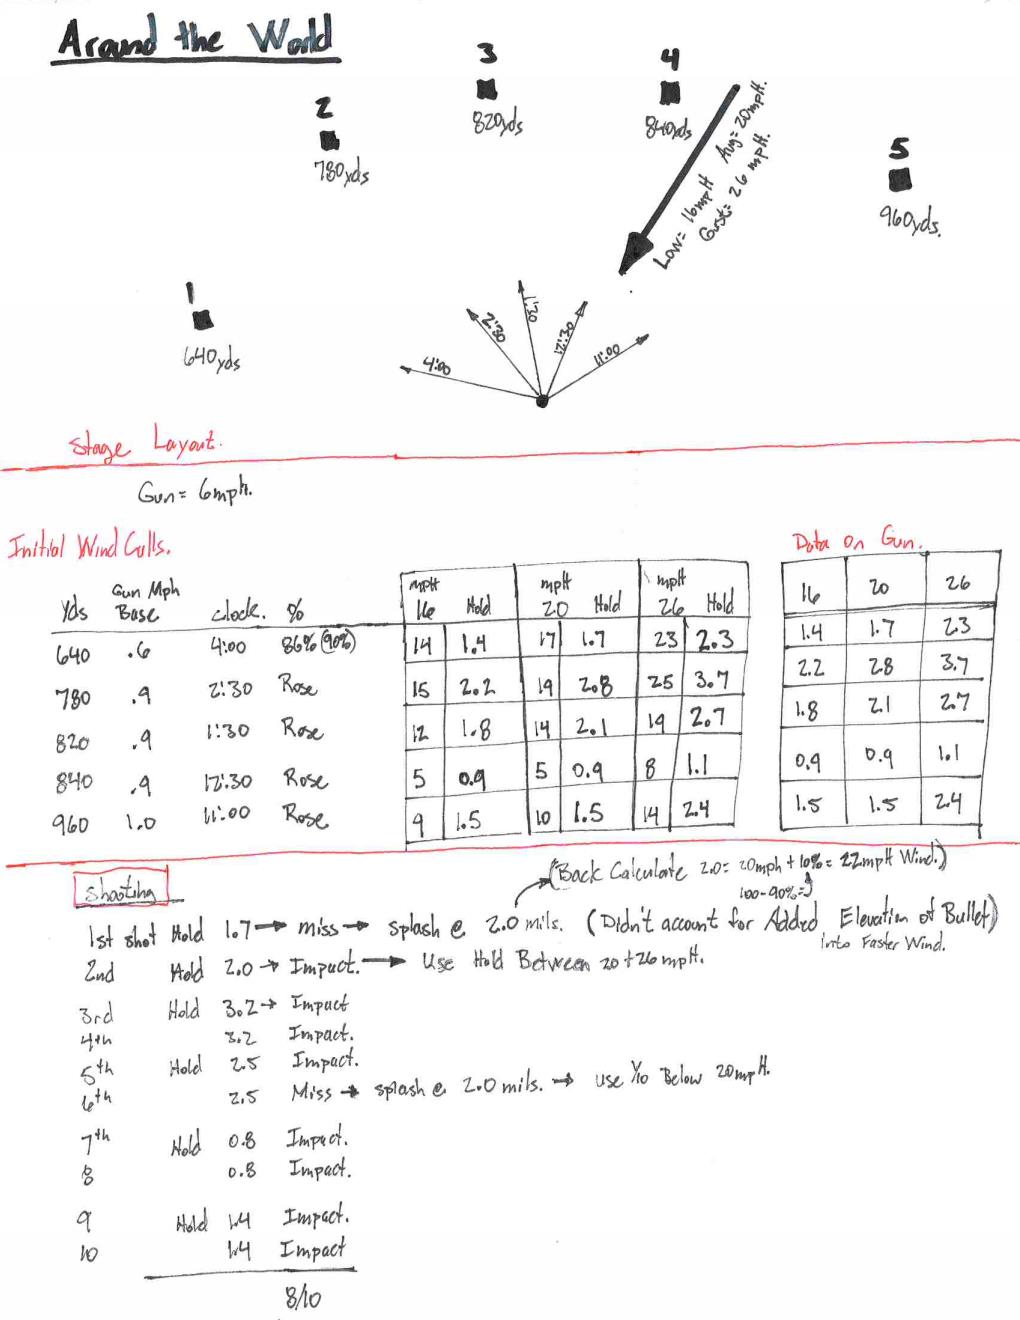 Around the World
3
4
2
820yds
840yds
780yds
Low= 16mpH Avg= 20mpH.
Gust= 26 mpH.
5
960yds.
1
640yds
4:00
2:30
1:30
12:30
11:00
Stage Layout.
Gun= 6mph.
Initial Wind Calls.
Data on Gun.
Yds Gun Mph Base clock. % mpH 16 Hold mpH 20 Hold mpH 26 Hold 16 20 26
640 .6 4:00 86% (90%) 14 1.4 17 1.7 23 2.3 1.4 1.7 2.3
780 .9 2:30 Rose 15 2.2 19 2.8 25 3.7 2.2 2.8 3.7
820 .9 1:30 Rose 12 1.8 14 2.1 19 2.7 1.8 2.1 2.7
840 .9 12:30 Rose 5 0.9 5 0.9 8 1.1 0.9 0.9 1.1
960 1.0 11:00 Rose 9 1.5 10 1.5 14 2.4 1.5 1.5 2.4
Shooting
(Back Calculate 2.0= 20mph + 10% = 22mpH Wind.)
100-90%=
1st shot Hold 1.7 → miss → splash @ 2.0 mils. (Didn't account for Added Elevation of Bullet)
Into Faster Wind.
2nd Hold 2.0 → Impact. → Use Hold Between 20+26 mpH.
3rd Hold 3.2 → Impact
4th 3.2 Impact.
5th Hold 2.5 Impact.
6th 2.5 Miss → splash @ 2.0 mils. → use 1/10 Below 20mpH.
7th Hold 0.8 Impact.
8 0.8 Impact.
9 Hold 1.4 Impact.
10 1.4 Impact
8/10